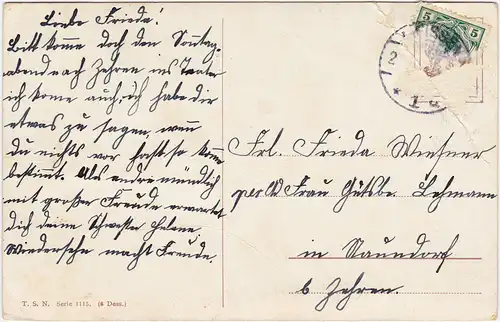 Liebe Frieda!
Bitt komme doch den Sonntag
abend nach Zehren ins Teater
ich kome auch, ich habe dir
etwas zu sagen, wenn
du nichts vor hast so kome
bestimmt. Als andre mündlich
mit großer Freude erwartet
dich deine Schwester Helene.
Wiedersehn macht Freude.
T. S. N. Serie 1115. (6 Dess.)
5 5
Frl. Frieda Wießner
per Ad Frau Gutsbe. Lehmann
in Naundorf
b Zehren.